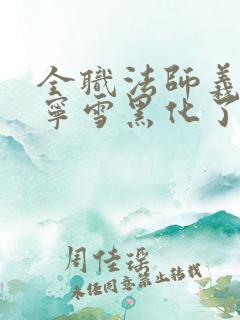 全職法師義
寧雪黑化了
周佳瑶
未经同意禁止转载